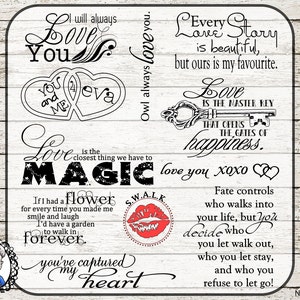 I will always
Love
You
Owl always love you.
Every
Love Story
is beautiful,
but ours is my favourite.
YOU
AND
ME
4 eva
Love
IS THE MASTER KEY
THAT OPENS
THE GATES OF
happiness.
Love is the
closest thing we have to
MAGIC
love you xoxo
If I had a flower
for every time you made me
smile and laugh
I'd have a garden
to walk in
forever.
S.W.A.L.K
Fate controls
who walks into
your life, but you
decide who
you let walk out,
who you let stay,
and who you
refuse to let go!
you've captured
my heart